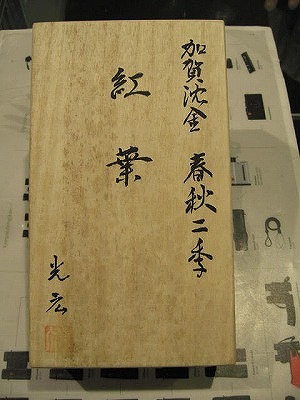 加賀沈金 春秋二季
紅葉
光宏